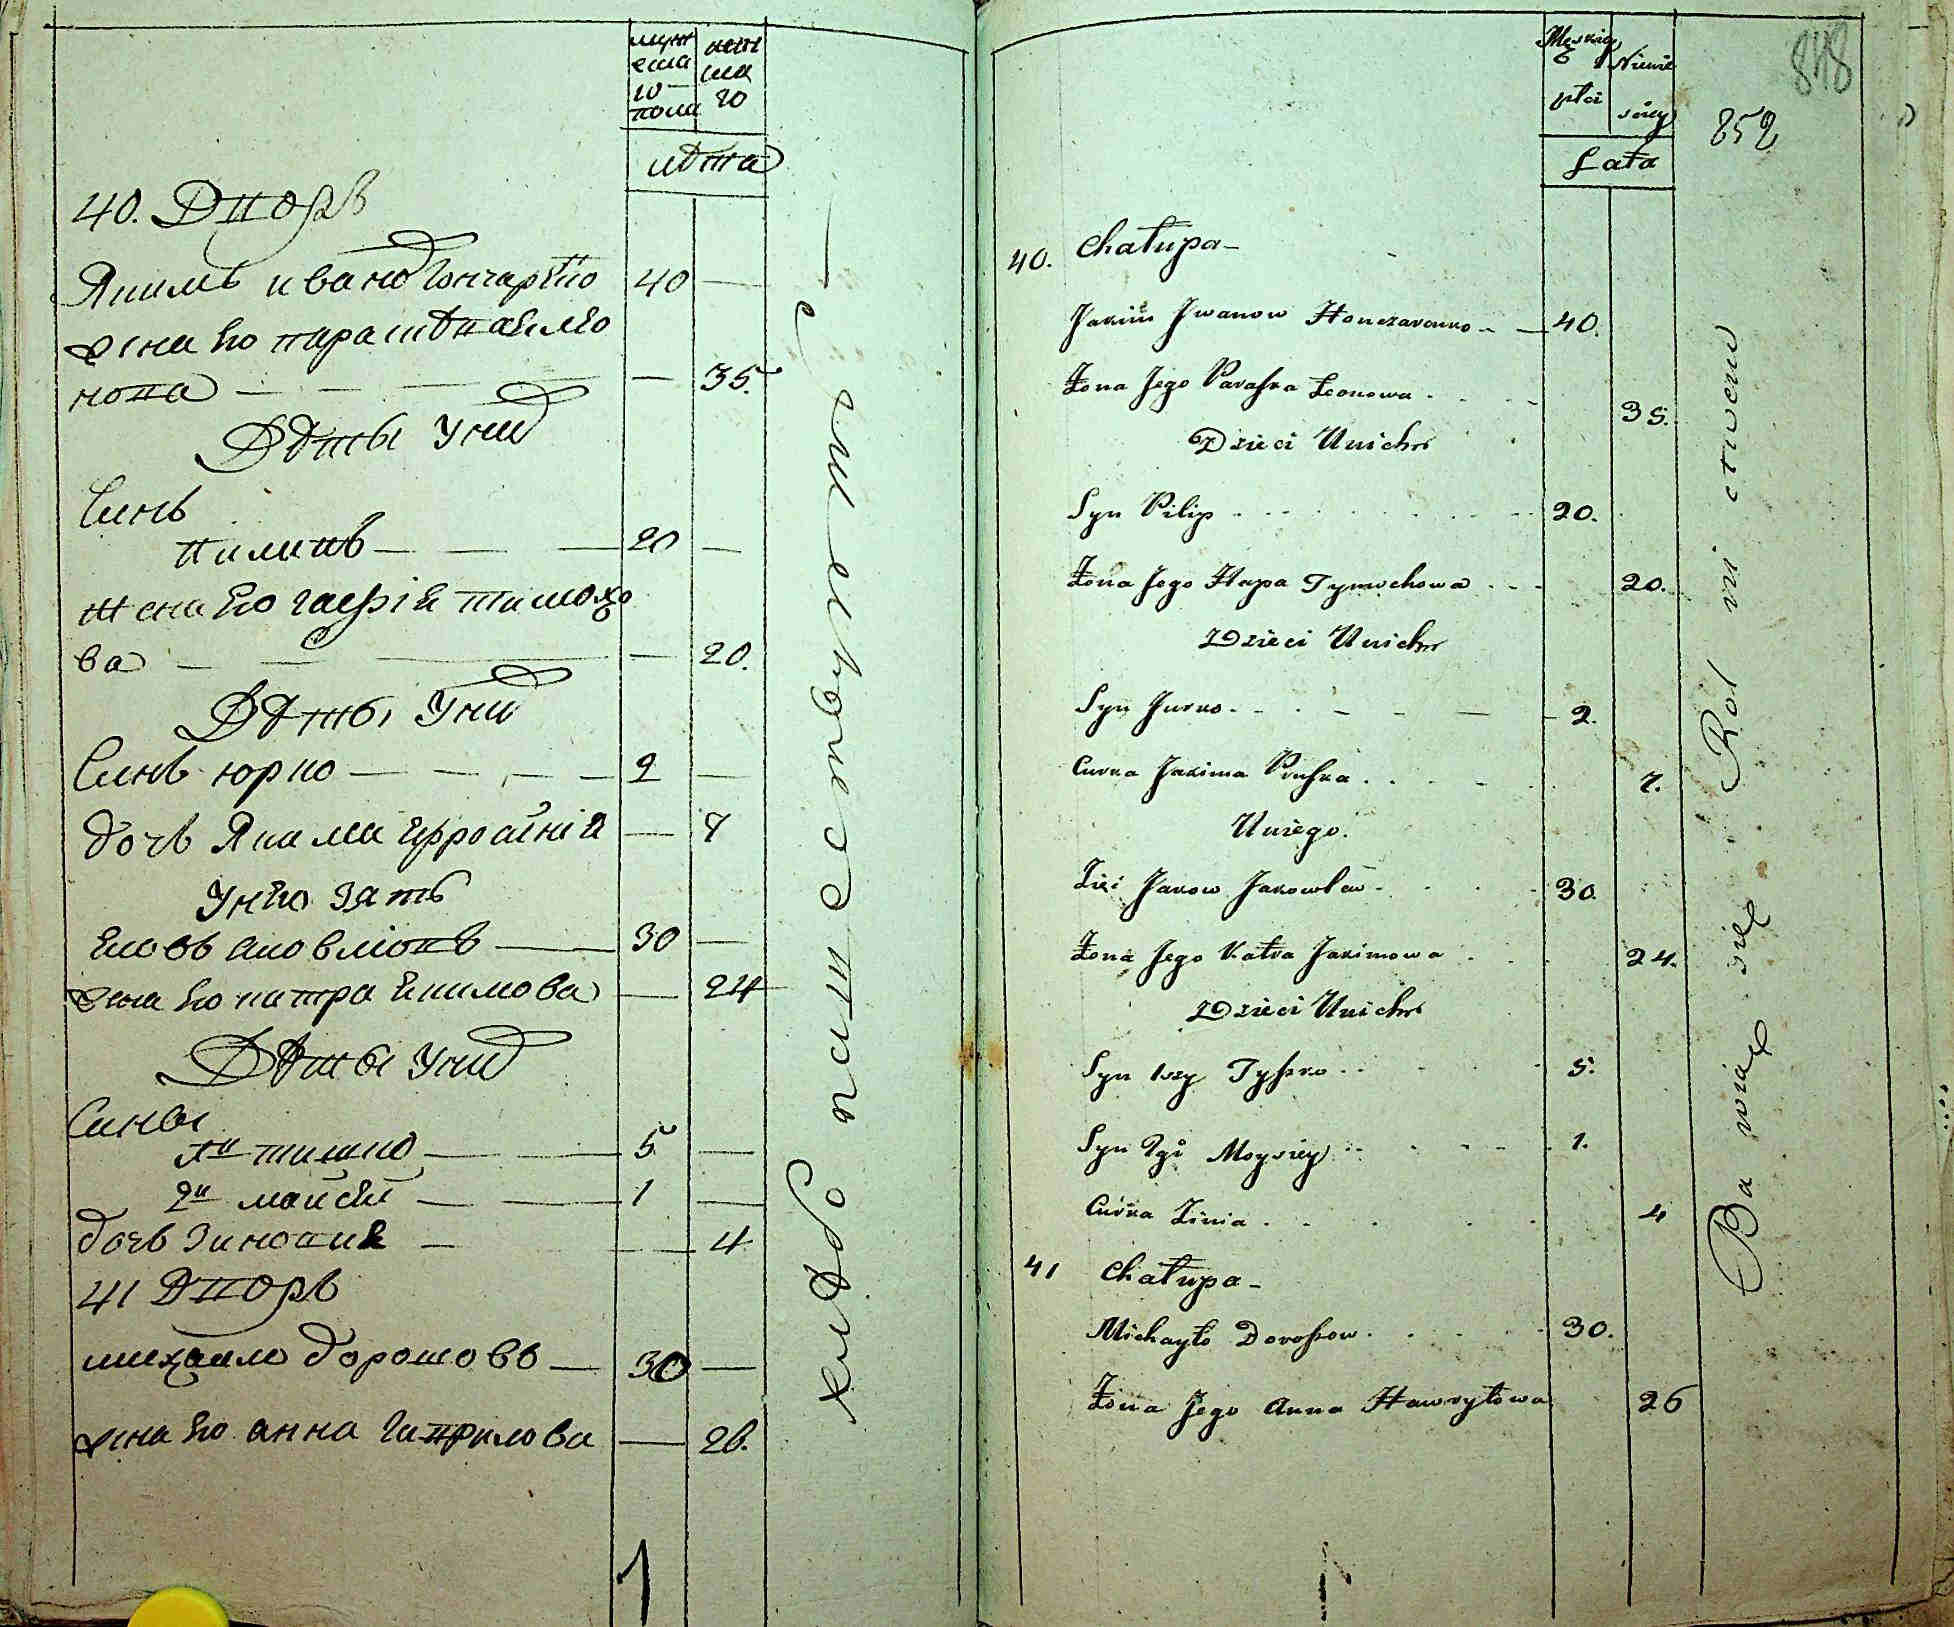 муж
еска
го
пола
жен
ска
го
лѣта
40. Дворъ
Якимъ Иванов Гончарено 40 —
жена Ево Параш Леѡ
нова — — — 35.
Дѣты У них
Синъ
Пилипъ — — — 20 —
жена Ево Гапія Тимохо
ва — — — 20.
Дѣты У них
Синъ Юрко — — — — 2 —
дочь Якима Ефросинія — 7
У нево зять
Яковъ Яковлювъ — 30 —
жена Ево Катра Екимова — 24
Дѣты У них
Сины
1й Тишко — — 5 —
2й Мойсѣй — — 1 —
дочь Зиновия — — 4
41 Дворъ
Михаило Дорошовъ — 30 —
жена Ево Анна Гаврилова — 26.
хлѣбопашествуют —
Męskiey
płci
Niewie
ściey
Lata
848
852
40. Chałupa -
Jakim Iwanow Honczarenko - - 40.
Żona Jego Paraska Leonowa . . . 35.
Dzieci U nich
Syn Pilip - - - - 20.
Żona Jego Hapa Tymochowa - - - 20.
Dzieci U nich
Syn Jurko - - - - 2.
Curka Jakima Pruska . . . 7.
U niego.
Zięć Jakow Jakowlew - . . 30.
Żona Jego Katra Jakimowa . . . 24.
Dzieci U nich
Syn 1szy Tyszko - - - 5.
Syn 2gi Moysiey - - - 1.
Curka Zinia . . . . 4
41 Chałupa -
Michayło Doroszow . . . 30.
Żona Jego Anna Hawryłowa 26
Bawią się Rolnictwem